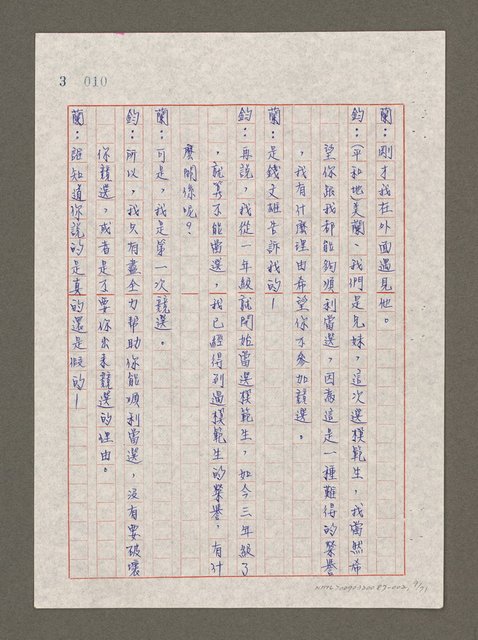 3 010
蘭：剛才我在外面遇見他。
鈞：(平和地)美蘭、我們是兄妹，這次選模範生，我當然希
望你跟我都能夠順利當選，因為這是一種難得的榮譽
，我有什麼理由希望你不參加競選。
蘭：是錢文雄告訴我的！
鈞：再說，我從一年級就開始當選模範生，如今三年級了
，就算不能當選，我已經得到過模範生的榮譽，有什
麼關係呢？
蘭：可是，我是第一次競選。
鈞：所以，我只有盡全力幫助你能順利當選，沒有要破壞
你競選，或者是不要你出來競選的理由。
蘭：誰知道你說的是真的還是假的！
9/71